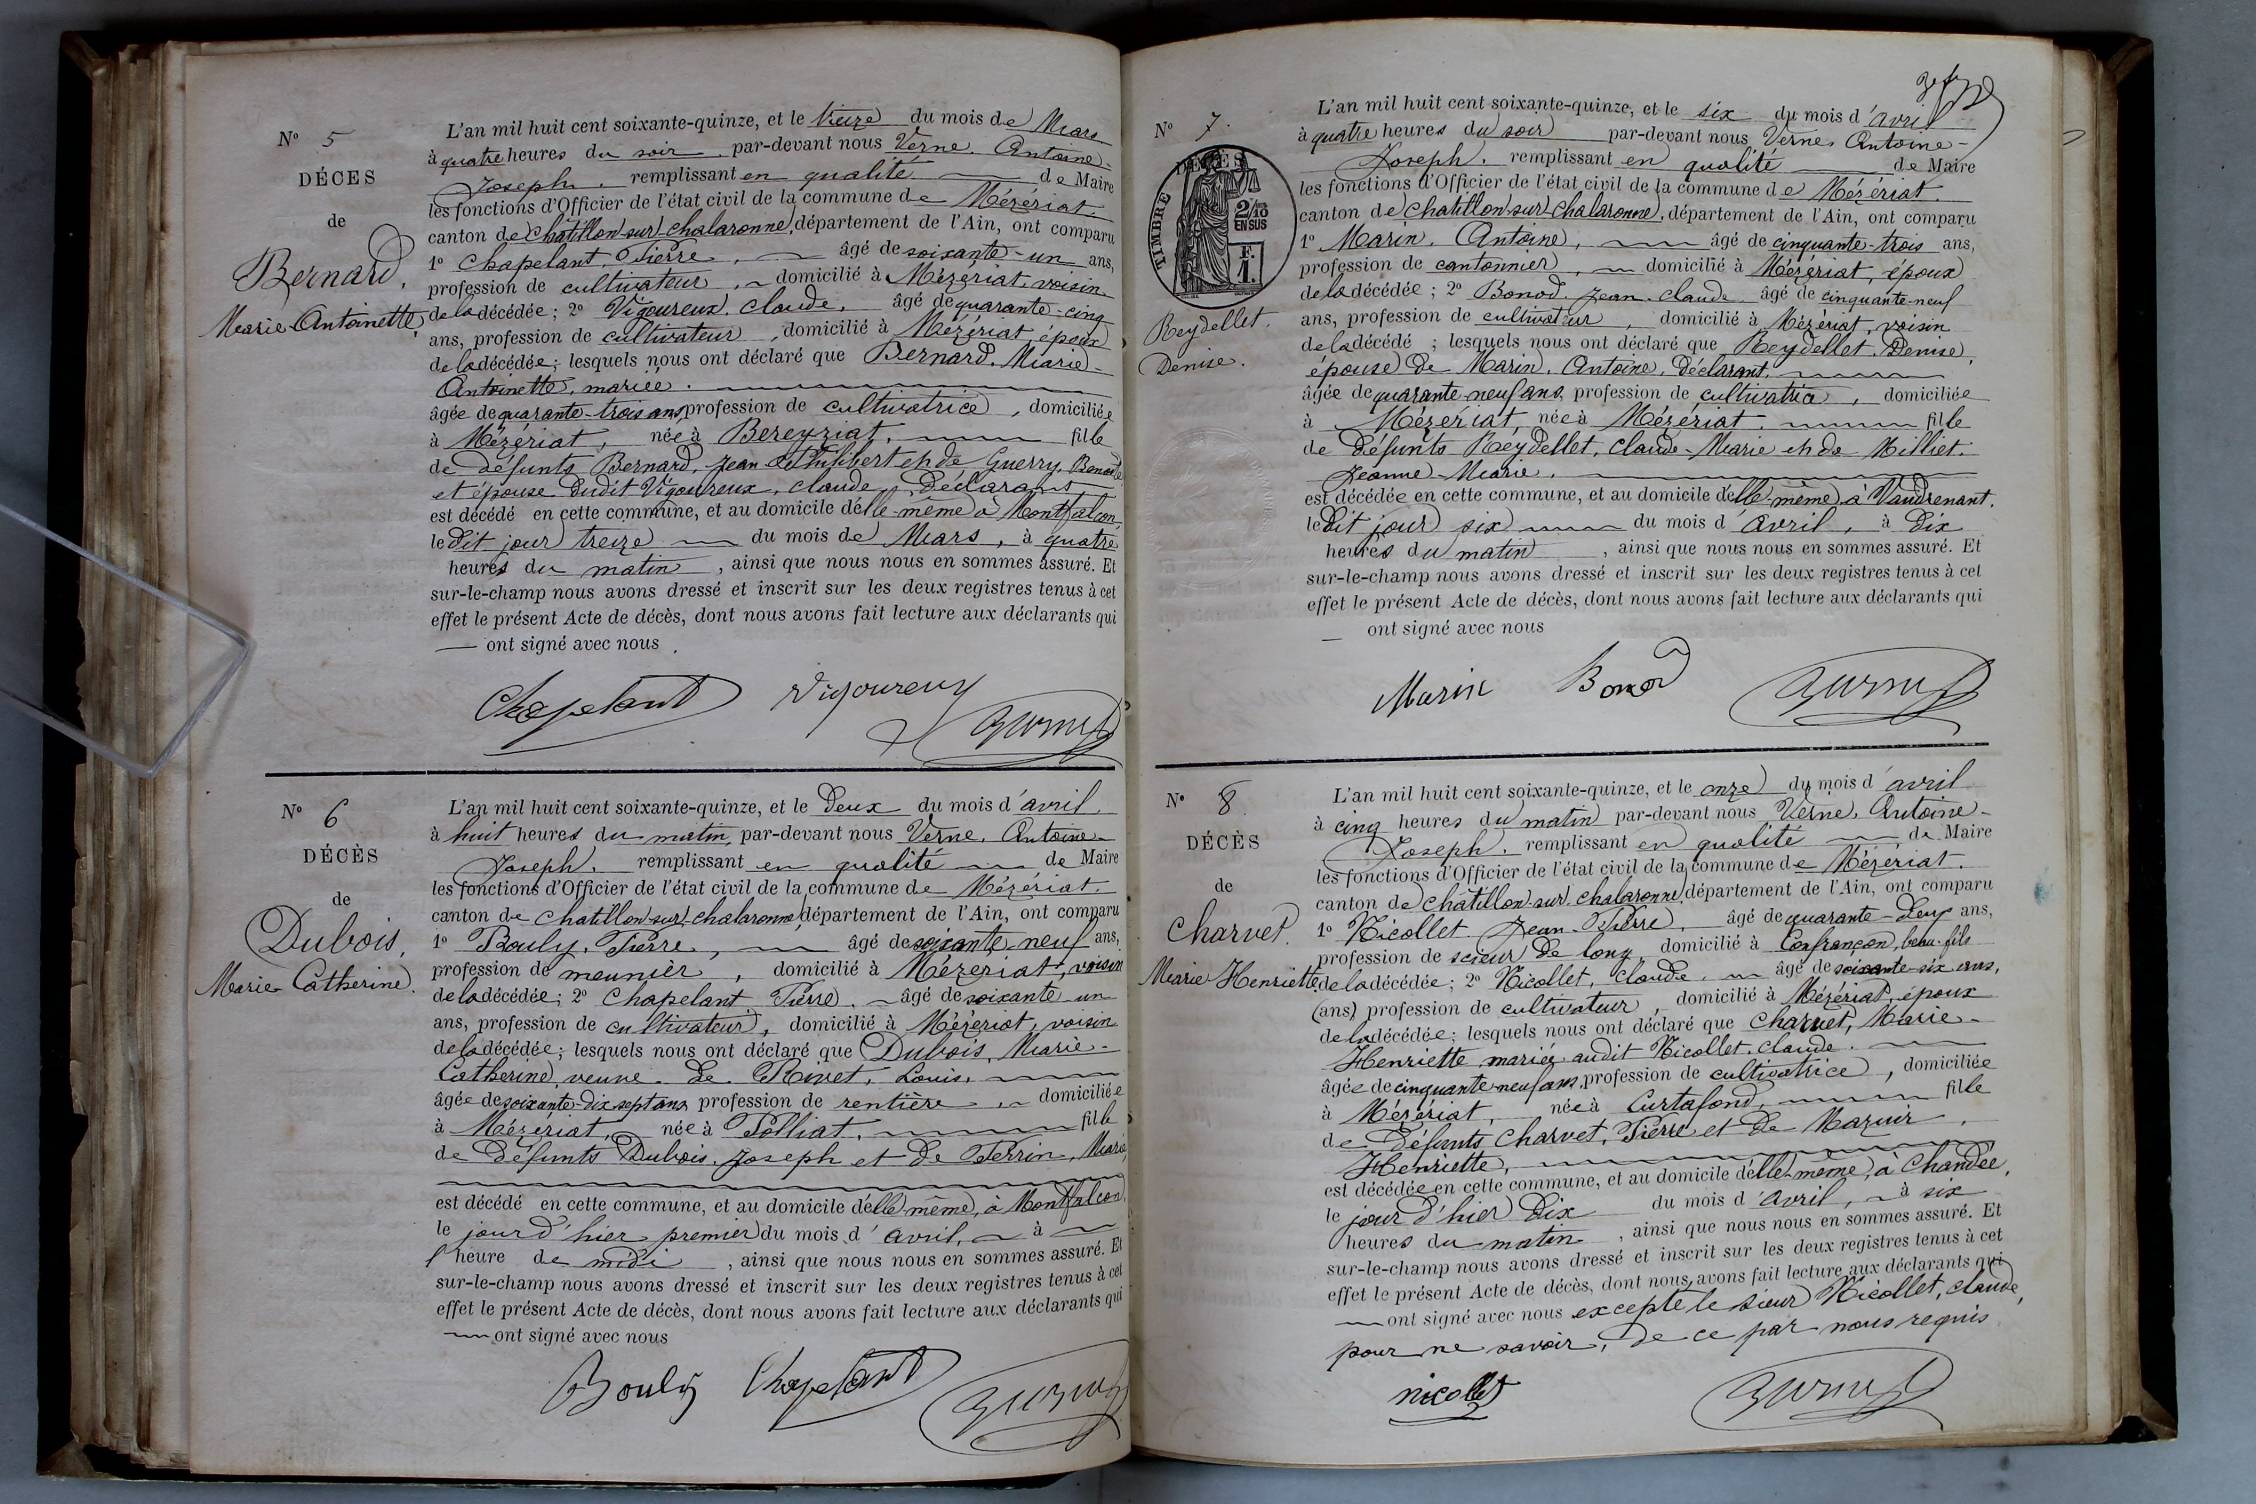 N° 5
DÉCES
de
Bernard,
Marie-Antoinette,
L'an mil huit cent soixante-quinze, et le treize du mois de Mars
à quatre heures du soir par-devant nous Verne, Antoine-
Joseph, remplissant en qualité de Maire
les fonctions d'Officier de l'état civil de la commune de Mézériat.
canton de Chatillon-sur-Chalaronne, département de l'Ain, ont comparu
1° Chapelant, Pierre, âgé de soixante-un ans,
profession de cultivateur, domicilié à Mézériat, voisin
de la décédée; 2° Vigoureux, Claude, âgé de quarante-cinq
ans, profession de cultivateur, domicilié à Mézériat, époux
de la décédée; lesquels nous ont déclaré que Bernard, Marie-
Antoinette, mariée.
âgée de quarante-trois ans, profession de cultivatrice, domiciliée
à Mézériat, née à Bereyziat, fille
de défunts Bernard, Jean-Philibert et de Guerry, Benoite
et épouse dudit Vigoureux, Claude, Déclarant
est décédé en cette commune, et au domicile d'elle-même à Montfalcon,
le dit jour treize du mois de Mars, à quatre
heures du matin, ainsi que nous nous en sommes assuré. Et
sur-le-champ nous avons dressé et inscrit sur les deux registres tenus à cet
effet le présent Acte de décès, dont nous avons fait lecture aux déclarants qui
ont signé avec nous.
Chapelant Vigoureux Verne
N° 6
DÉCÈS
de
Dubois,
Marie-Catherine.
L'an mil huit cent soixante-quinze, et le Deux du mois d'avril
à huit heures du matin, par-devant nous Verne, Antoine-
Joseph, remplissant en qualité de Maire
les fonctions d'Officier de l'état civil de la commune de Mézériat.
canton de Chatillon-sur-Chalaronne, département de l'Ain, ont comparu
1° Bouly, Pierre, âgé de soixante-neuf ans,
profession de meunièr, domicilié à Mézeriat, voisin
de la décédée; 2° Chapelant Pierre, âgé de soixante-un
ans, profession de cultivateur, domicilié à Mézériat, voisin
de la décédée; lesquels nous ont déclaré que Dubois, Marie-
Catherine, veuve de Rivet, Louis,
âgée de soixante-dix-sept ans, profession de rentière, domiciliée
à Mézériat, née à Polliat, fille
de Défunts Dubois, Joseph et de Perrin, Marie,
est décédé en cette commune, et au domicile d'elle-même, à Montfalcon
le jour d'hier premier du mois d'avril, à
l'heure de midi, ainsi que nous nous en sommes assuré. Et
sur-le-champ nous avons dressé et inscrit sur les deux registres tenus à cet
effet le présent Acte de décès, dont nous avons fait lecture aux déclarants qui
ont signé avec nous
Bouly Chapelant Verne
N° 7.
DÉCÈS
TIMBRE
2/10
EN SUS
F.
1.
Reydellet.
Denise.
L'an mil huit cent soixante-quinze, et le six du mois d'avril
à quatre heures du soir par-devant nous Verne, Antoine-
Joseph, remplissant en qualité de Maire
les fonctions d'Officier de l'état civil de la commune de Mézériat.
canton de Chatillon-sur-Chalaronne, département de l'Ain, ont comparu
1° Marin, Antoine, âgé de cinquante-trois ans,
profession de cantonnier, domicilié à Mézériat, époux
de la décédée; 2° Bonod, Jean-Claude âgé de cinquante-neuf
ans, profession de cultivateur, domicilié à Mézériat, voisin
de la décédé; lesquels nous ont déclaré que Reydellet, Denise,
épouse de Marin, Antoine, Déclarant.
âgée de quarante-neuf ans, profession de cultivatrice, domiciliée
à Mézériat, née à Mézériat, fille
de défunts Reydellet, Claude-Marie et de Milliet,
Jeanne-Marie,
est décédée en cette commune, et au domicile d'elle-même, à Vaudrenant,
le dit jour six du mois d'avril, à Dix
heures du matin, ainsi que nous nous en sommes assuré. Et
sur-le-champ nous avons dressé et inscrit sur les deux registres tenus à cet
effet le présent Acte de décès, dont nous avons fait lecture aux déclarants qui
ont signé avec nous
Marin Bonod Verne
N° 8
DÉCÈS
de
Charvet.
Marie-Henriette
L'an mil huit cent soixante-quinze, et le onze du mois d'avril
à cinq heures du matin par-devant nous Verne, Antoine-
Joseph, remplissant en qualité de Maire
les fonctions d'Officier de l'état civil de la commune de Mézériat.
canton de Chatillon-sur-Chalaronne, département de l'Ain, ont comparu
1° Nicollet Jean-Pierre, âgé de quarante-deux ans,
profession de scieur de long, domicilié à Confrançon, beau-fils
de la décédée; 2° Nicollet, Claude, âgé de soixante-six ans,
(ans) profession de cultivateur, domicilié à Mézériat, époux
de la décédée; lesquels nous ont déclaré que Charvet, Marie-
Henriette, mariée audit Nicollet, Claude.
âgée de cinquante-neuf ans, profession de cultivatrice, domiciliée
à Mézériat, née à Curtafond, fille
de Défunts Charvet, Pierre et de Mazuir,
Henriette,
est décédée en cette commune, et au domicile d'elle-même, à Chandée,
le jour d'hier Dix du mois d'avril, à six
heures du matin, ainsi que nous nous en sommes assuré. Et
sur-le-champ nous avons dressé et inscrit sur les deux registres tenus à cet
effet le présent Acte de décès, dont nous avons fait lecture aux déclarants qui
ont signé avec nous excepté le sieur Nicollet, Claude,
pour ne savoir, de ce par nous requis
nicollet Verne